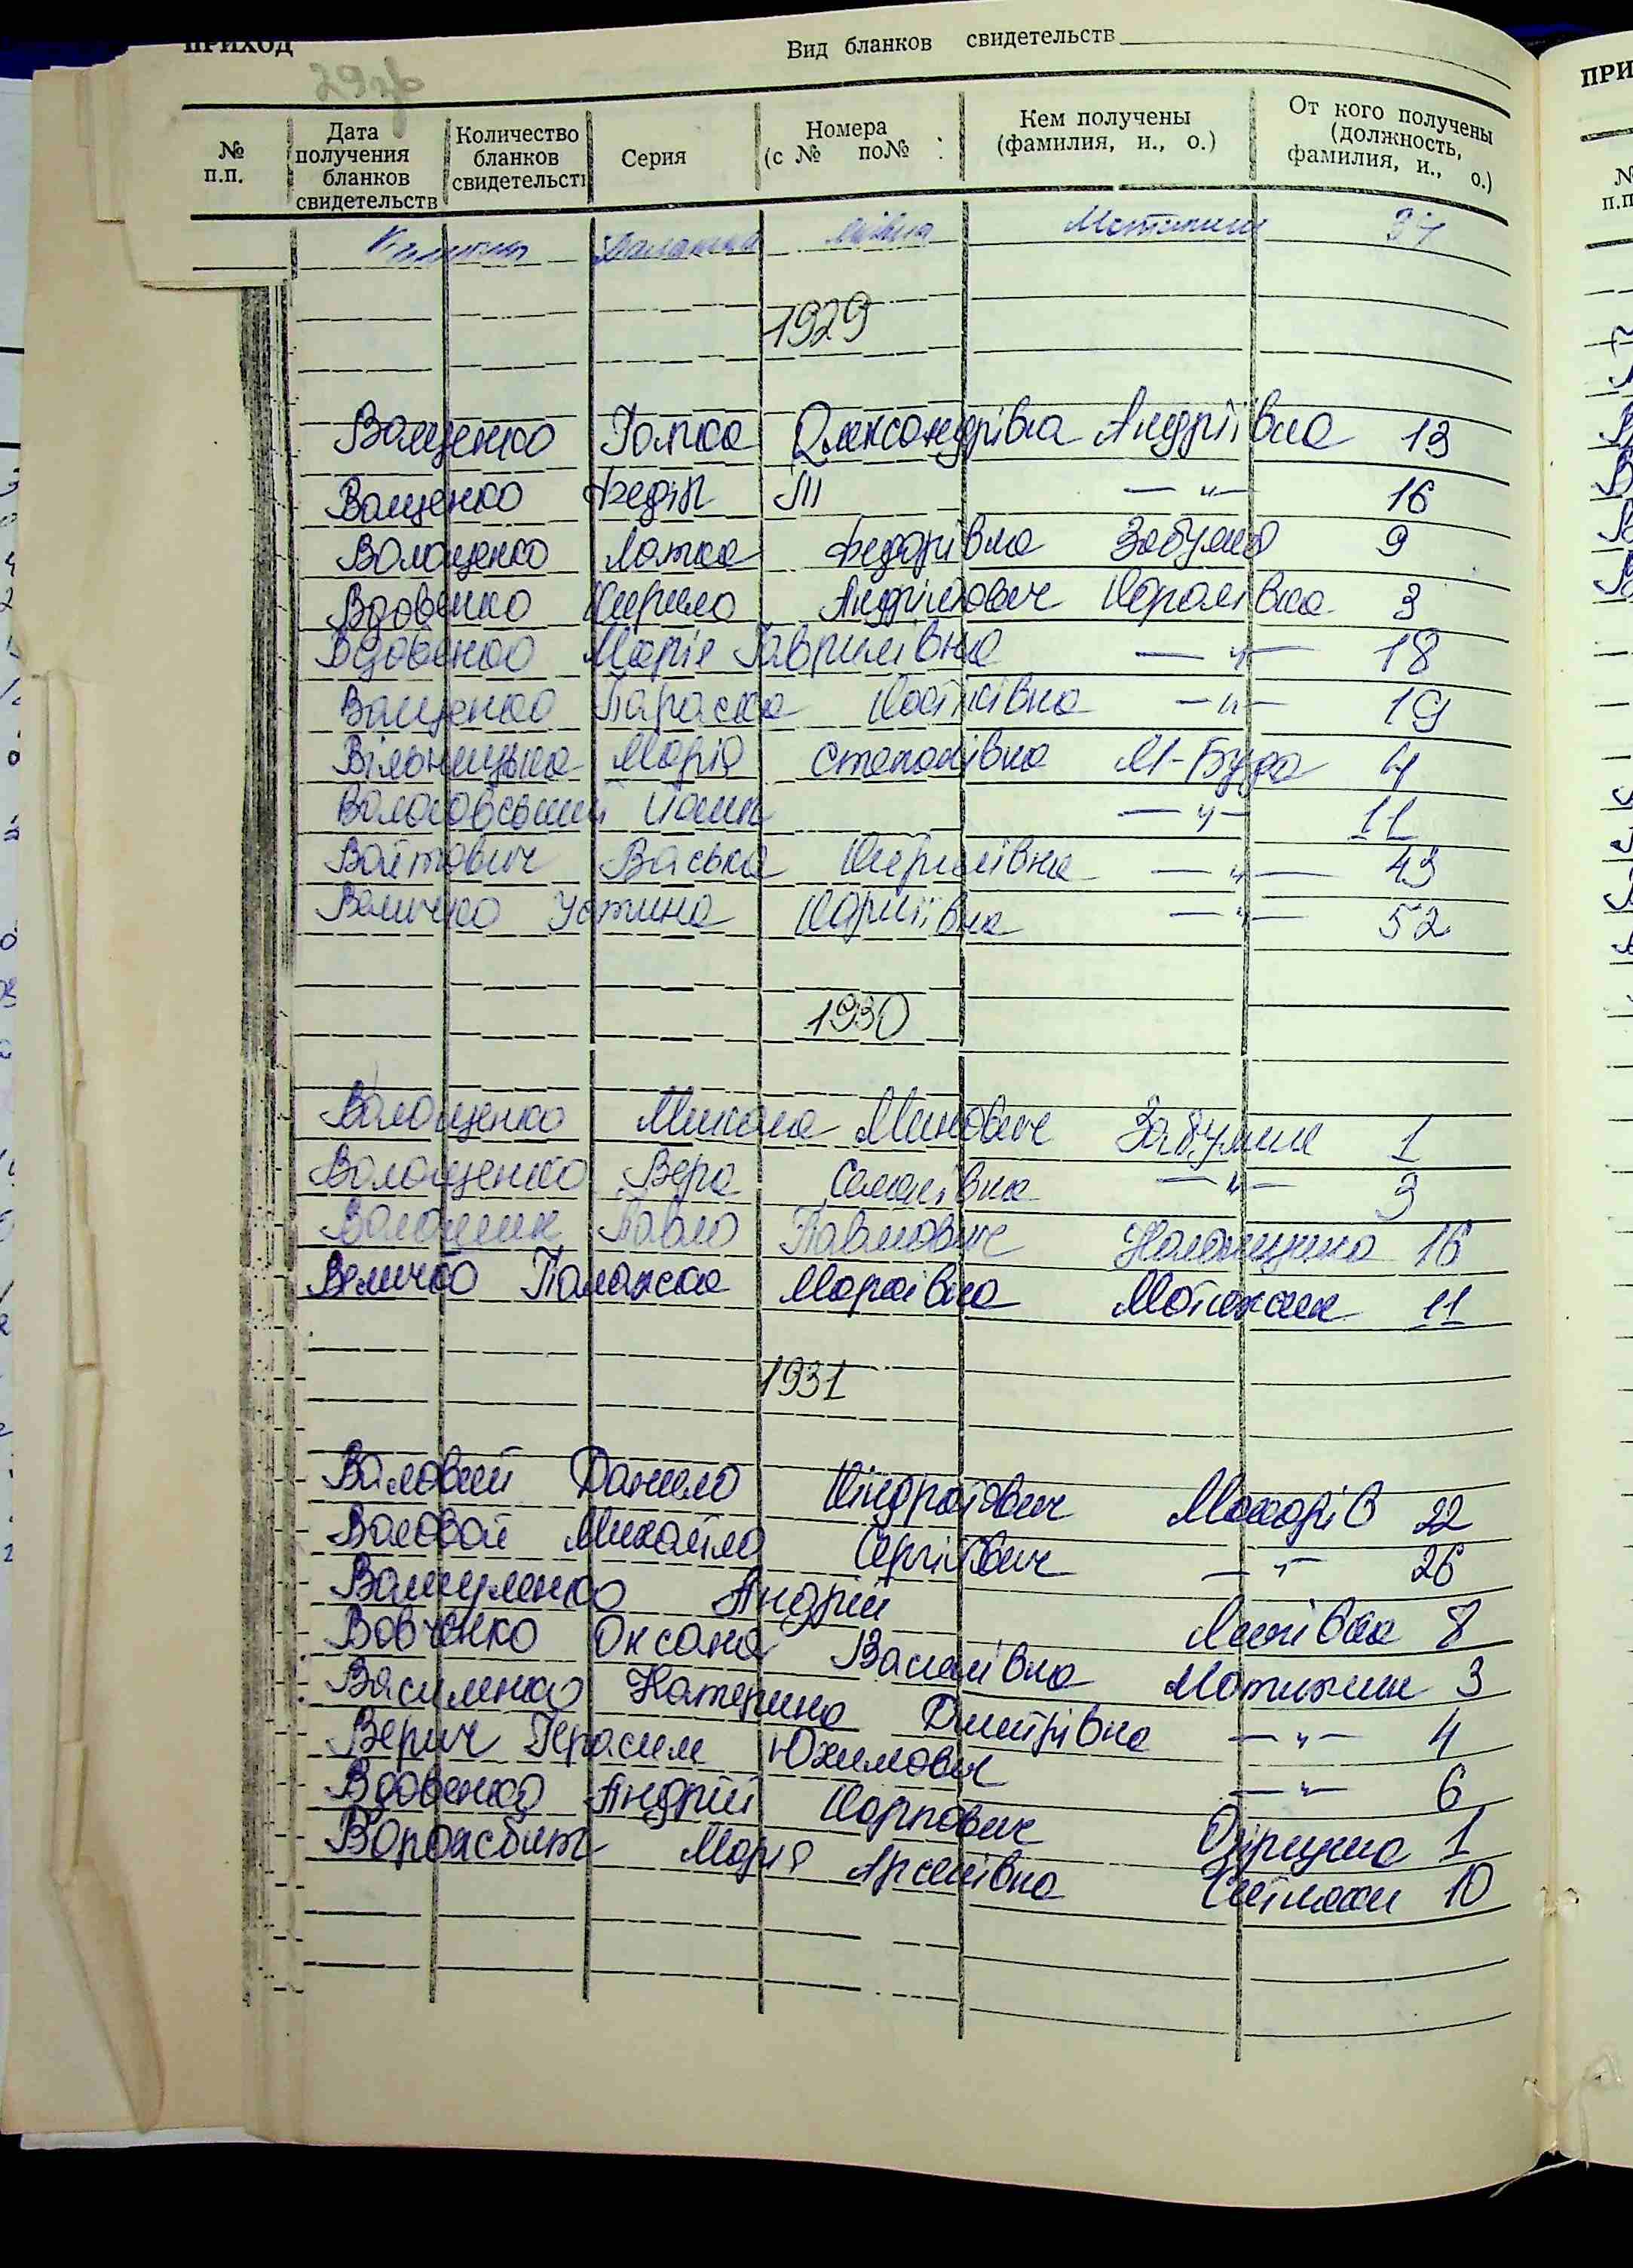 ПРИХОД Вид бланков свидетельств
№ п.п. Дата получения бланков свидетельств Количество бланков свидетельств Серия Номера (с № по№ Кем получены (фамилия, и., о.) От кого получены (должность, фамилия, и., о.)
Мотижин 34
1929
Ващенко Галка Олександрівна Андріївка 13
Ващенко Федір — " — 16
Волощенко Федорівна Забуяня 9
Вдовенко Кирило Андрійович Королівка 3
Вдовенко Марія Гаврилівна — " — 18
Ващенко Параска Костівна — " — 19
Вільницька Марія Степанівна М-Буда 4
— " — 11
Войтович Васька Кирилівна — " — 43
Величко Устина — " — 52
1930
Волощенко Микола Минович Забуяння 1
Волощенко Вера Семенівна — " — 3
Волошин Павло Павлович 16
Величко Палажка Марківна Мотижин 11
1931
Валовий Данило Кіндратович Макарів 22
Валовой Михайло Сергійович — " — 26
Андрій Липівка 8
Вовченко Оксана Василівна Мотижин 3
Василенко Катерина Дмитрівна — " — 4
Верич Герасим Юхимович — " — 6
Вдовенко Андрій Карпович 1
Ворожбит Марія Арсенівна Ситняки 10